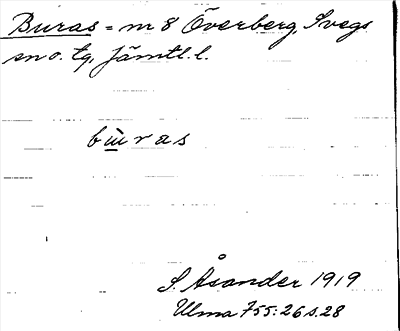 Buras = nr 8 Överberg, Svegs
sn o. tg, Jämtl. l.
bùras
S. Åsander 1919
Ulma 755:26 s.28